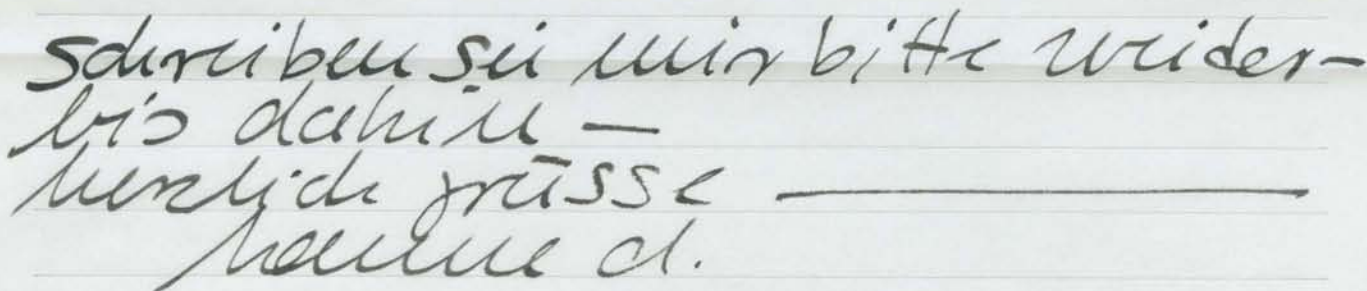 schreiben sie mir bitte wieder-
bis dahin —
herzliche grüsse —
hanne d.